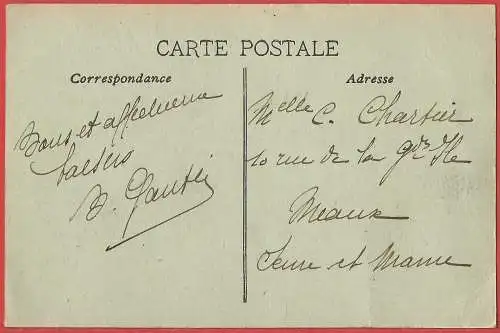 CARTE POSTALE
Correspondance
Bons et affectueux
baisers
B.
Adresse
Melle C. Chartier
10 rue de la Gde Ile
Meaux
Seine et Marne